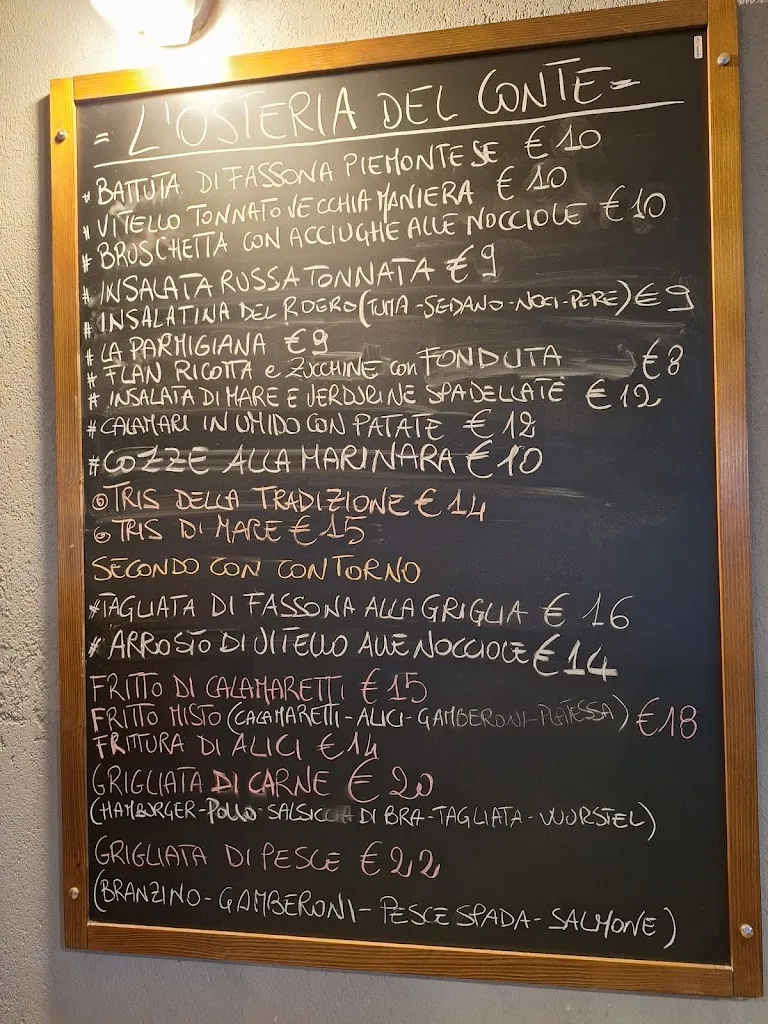 = L'OSTERIA DEL CONTE =
* BATTUTA DI FASSONA PIEMONTESE € 10
* VITELLO TONNATO VECCHIA MANIERA € 10
# BRUSCHETTA CON ACCIUGHE ALLE NOCCIOLE € 10
# INSALATA RUSSA TONNATA € 9
# INSALATINA DEL ROERO (TUMA-SEDANO-NOCI-PERE) € 9
# LA PARMIGIANA € 9
# FLAN RICOTTA e ZUCCHINE con FONDUTA € 8
# INSALATA DI MARE E VERDURINE SPADELLATE € 12
# CALAMARI IN UMIDO CON PATATE € 12
# COZZE ALLA MARINARA € 10
TRIS DELLA TRADIZIONE € 14
TRIS DI MARE € 15
SECONDO CON CONTORNO
# TAGLIATA DI FASSONA ALLA GRIGLIA € 16
# ARROSTO DI VITELLO ALLE NOCCIOLE € 14
FRITTO DI CALAMARETTI € 15
FRITTO MISTO (CALAMARETTI-ALICI-GAMBERONI-PLATESSA) € 18
FRITTURA DI ALICI € 14
GRIGLIATA DI CARNE € 20
(HAMBURGER-POLLO-SALSICCIA DI BRA-TAGLIATA-WURSTEL)
GRIGLIATA DI PESCE € 22
(BRANZINO-GAMBERONI-PESCE SPADA-SALMONE)